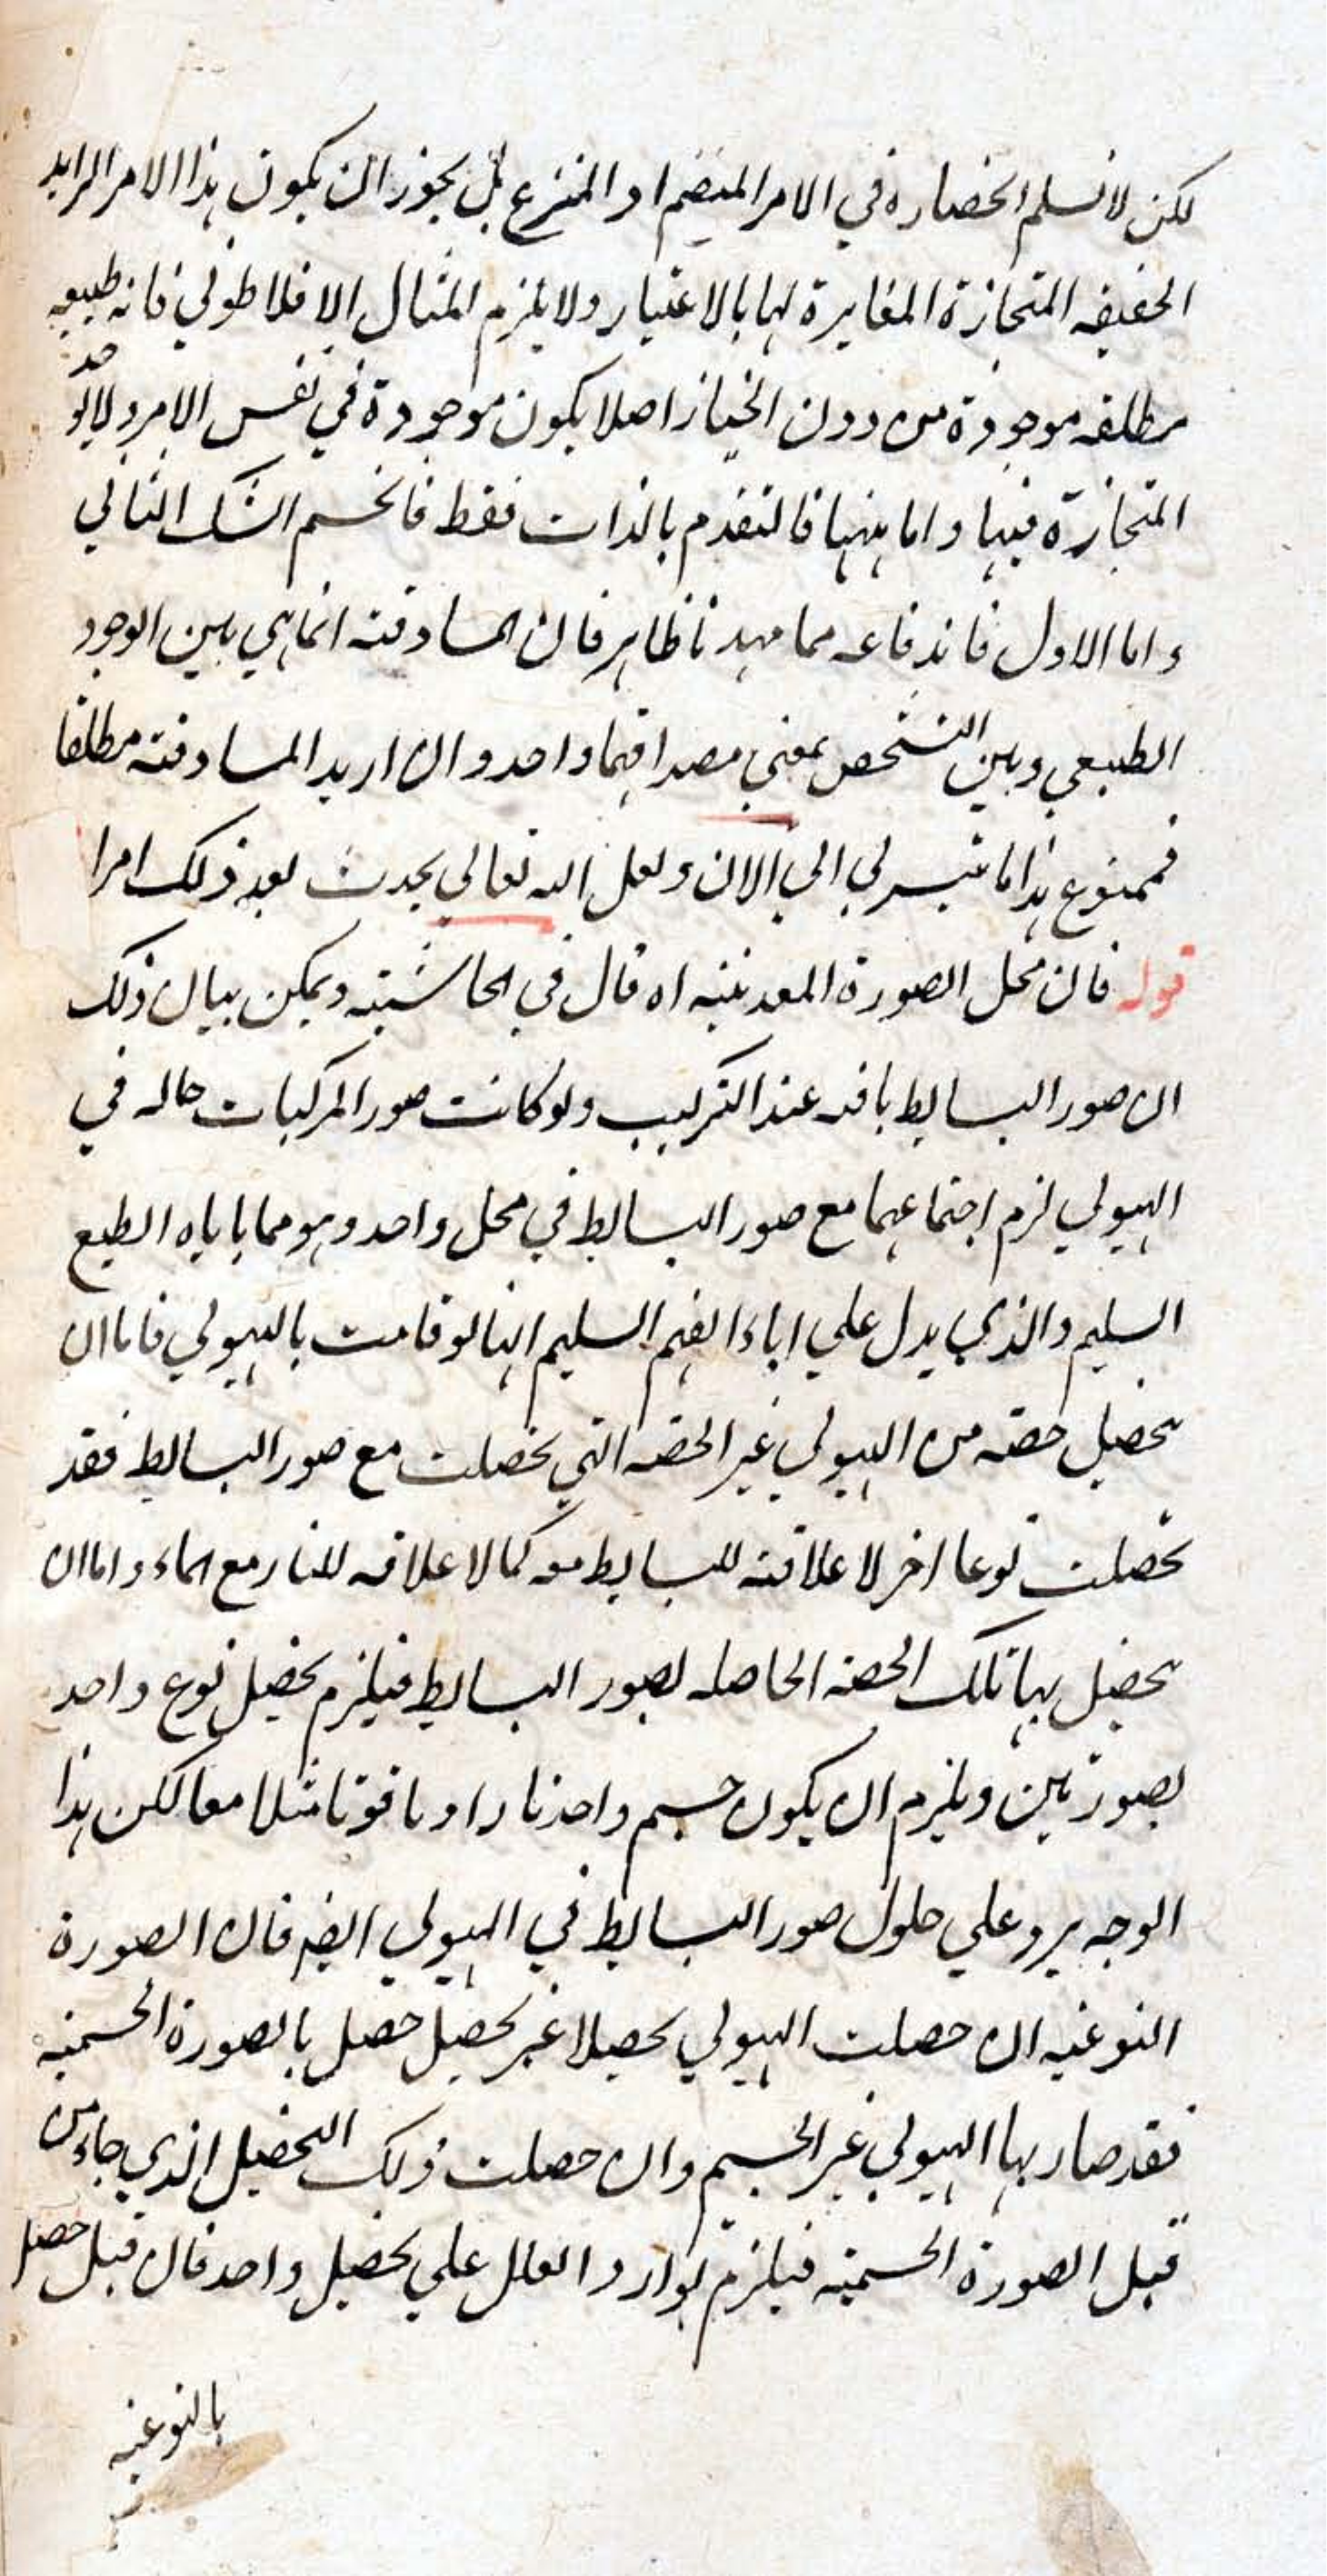 لكن لا نسلم انحصاره في الامر المنضم او المنتزع بل يجوز ان يكون هذا الامر الزايد
الحقيقه المنحازة المغايرة لها بالاعتبار ولا يلزم المثال الافلاطوني فانه طبيعه
مطلقه موجودة من دون انحياز اصلا يكون موجودة في نفس الامر ولا يوجد
المنحازة فيها واما بينها فالتقدم بالذات فقط فانحسم الشك الثاني
واما الاول فاندفاعه مما مهدنا ظاهر فان المساوقته انما هي بين الوجود
الطبيعي وبين التشخص بمعني مصداقهما واحد وان اريد المساوقته مطلقا
فممنوع هذا ما تيسر لي الي الان ولعل الله تعالي يحدث بعد ذلك امرا
قوله فان محل الصورة المعدنيه اه قال في الحاشيته ويمكن بيان ذلك
ان صور البسايط باقه عند التركيب ولو كانت صور المركبات حاله في
الهيولي لزم اجتماعهما مع صور البسايط في محل واحد وهو مما ياباه الطبع
السليم والذي يدل علي اباء الفهم السليم انها لو قامت بالهيولي فاما ان
تحصيل حصته من الهيولي غير الحصه التي تحصلت مع صور البسايط فقد
تحصلت نوعا اخر لا علاقته للبسايط معه كما لا علاقه للنار مع الماء واما ان
تحصيل بها تلك الحصه الحاصله بصور البسايط فيلزم تحصيل نوع واحد
بصورتين ويلزم ان يكون جسم واحد نارا وياقوتا مثلا معا لكن هذا
الوجه يرد علي حلول صور البسايط في الهيولي ايضه فان الصورة
النوعيه ان حصلت الهيولي تحصيلا غير تحصيل حصل بالصورة الجسميه
فقد صار بها الهيولي غير الجسم وان حصلت ذلك التحصيل الذي جاء من
قبل الصورة الجسميه فيلزم توارد العلل علي تحصيل واحد فان قيل حصل
بالنوعيه